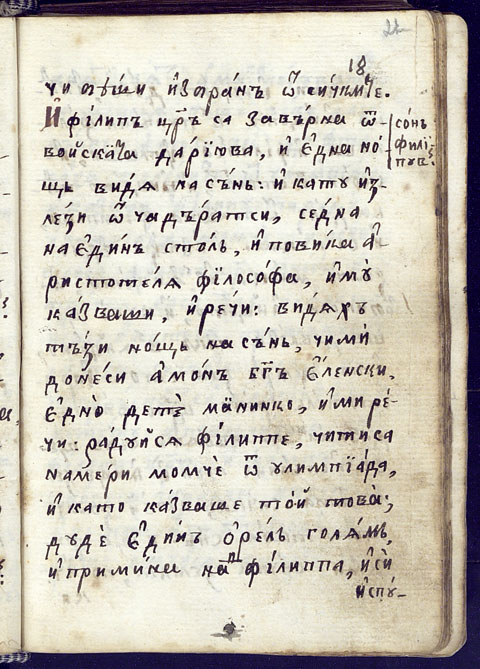 18
чи тѫ́ши и҆збра́нъ ѿ си́чкиⷮе.
И҆ фі́липъ цр҃ъ са завъ́рна ѿ
во́йскаⷮа да́рїюва, и҆ є҆дна но́-
щь видѧ̀ на сънь: и҆ ка́ту и҆з-
ле́зи ѿ ча́дъратси, се́дна
на є҆ди́нъ столь, и҆ пови́ка а҆-
ристоте́лѧ фїлосо́фа, и҆ му̀
ка́зваши, и҆ ре́чи: ви́дѧхъ
тѣ́зи но́щь на сънь, чи мѝ
доне́си а҆мо́нъ бг҃ъ є҆́ленски,
є҆дно̀ детѐ ма́нинко, и҆ ми ре́-
чи: ра́дуйсѧ фі́липпе, чи ти са
наме́ри момчѐ ѿ улимпїа́да,
и҆ като ка́зваше то́й това̀;
ду́дѐ є҆ди́нъ о҆ре́лъ голѧ́мъ,
и҆ прими́на наⷣ фі́липпа, и҆ сѝ
и҆спу́-
со́нь
філі́-
пув.